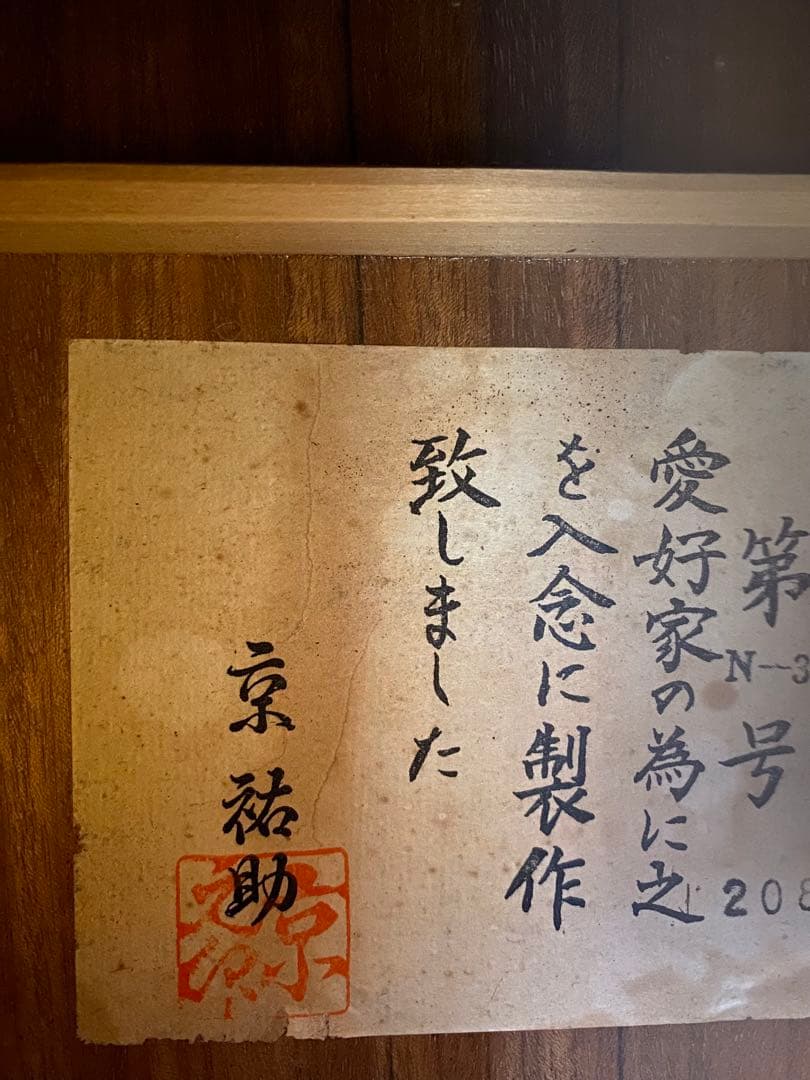 第
N-3
号
208
愛好家の為に之
を入念に製作
致しました
京祐助